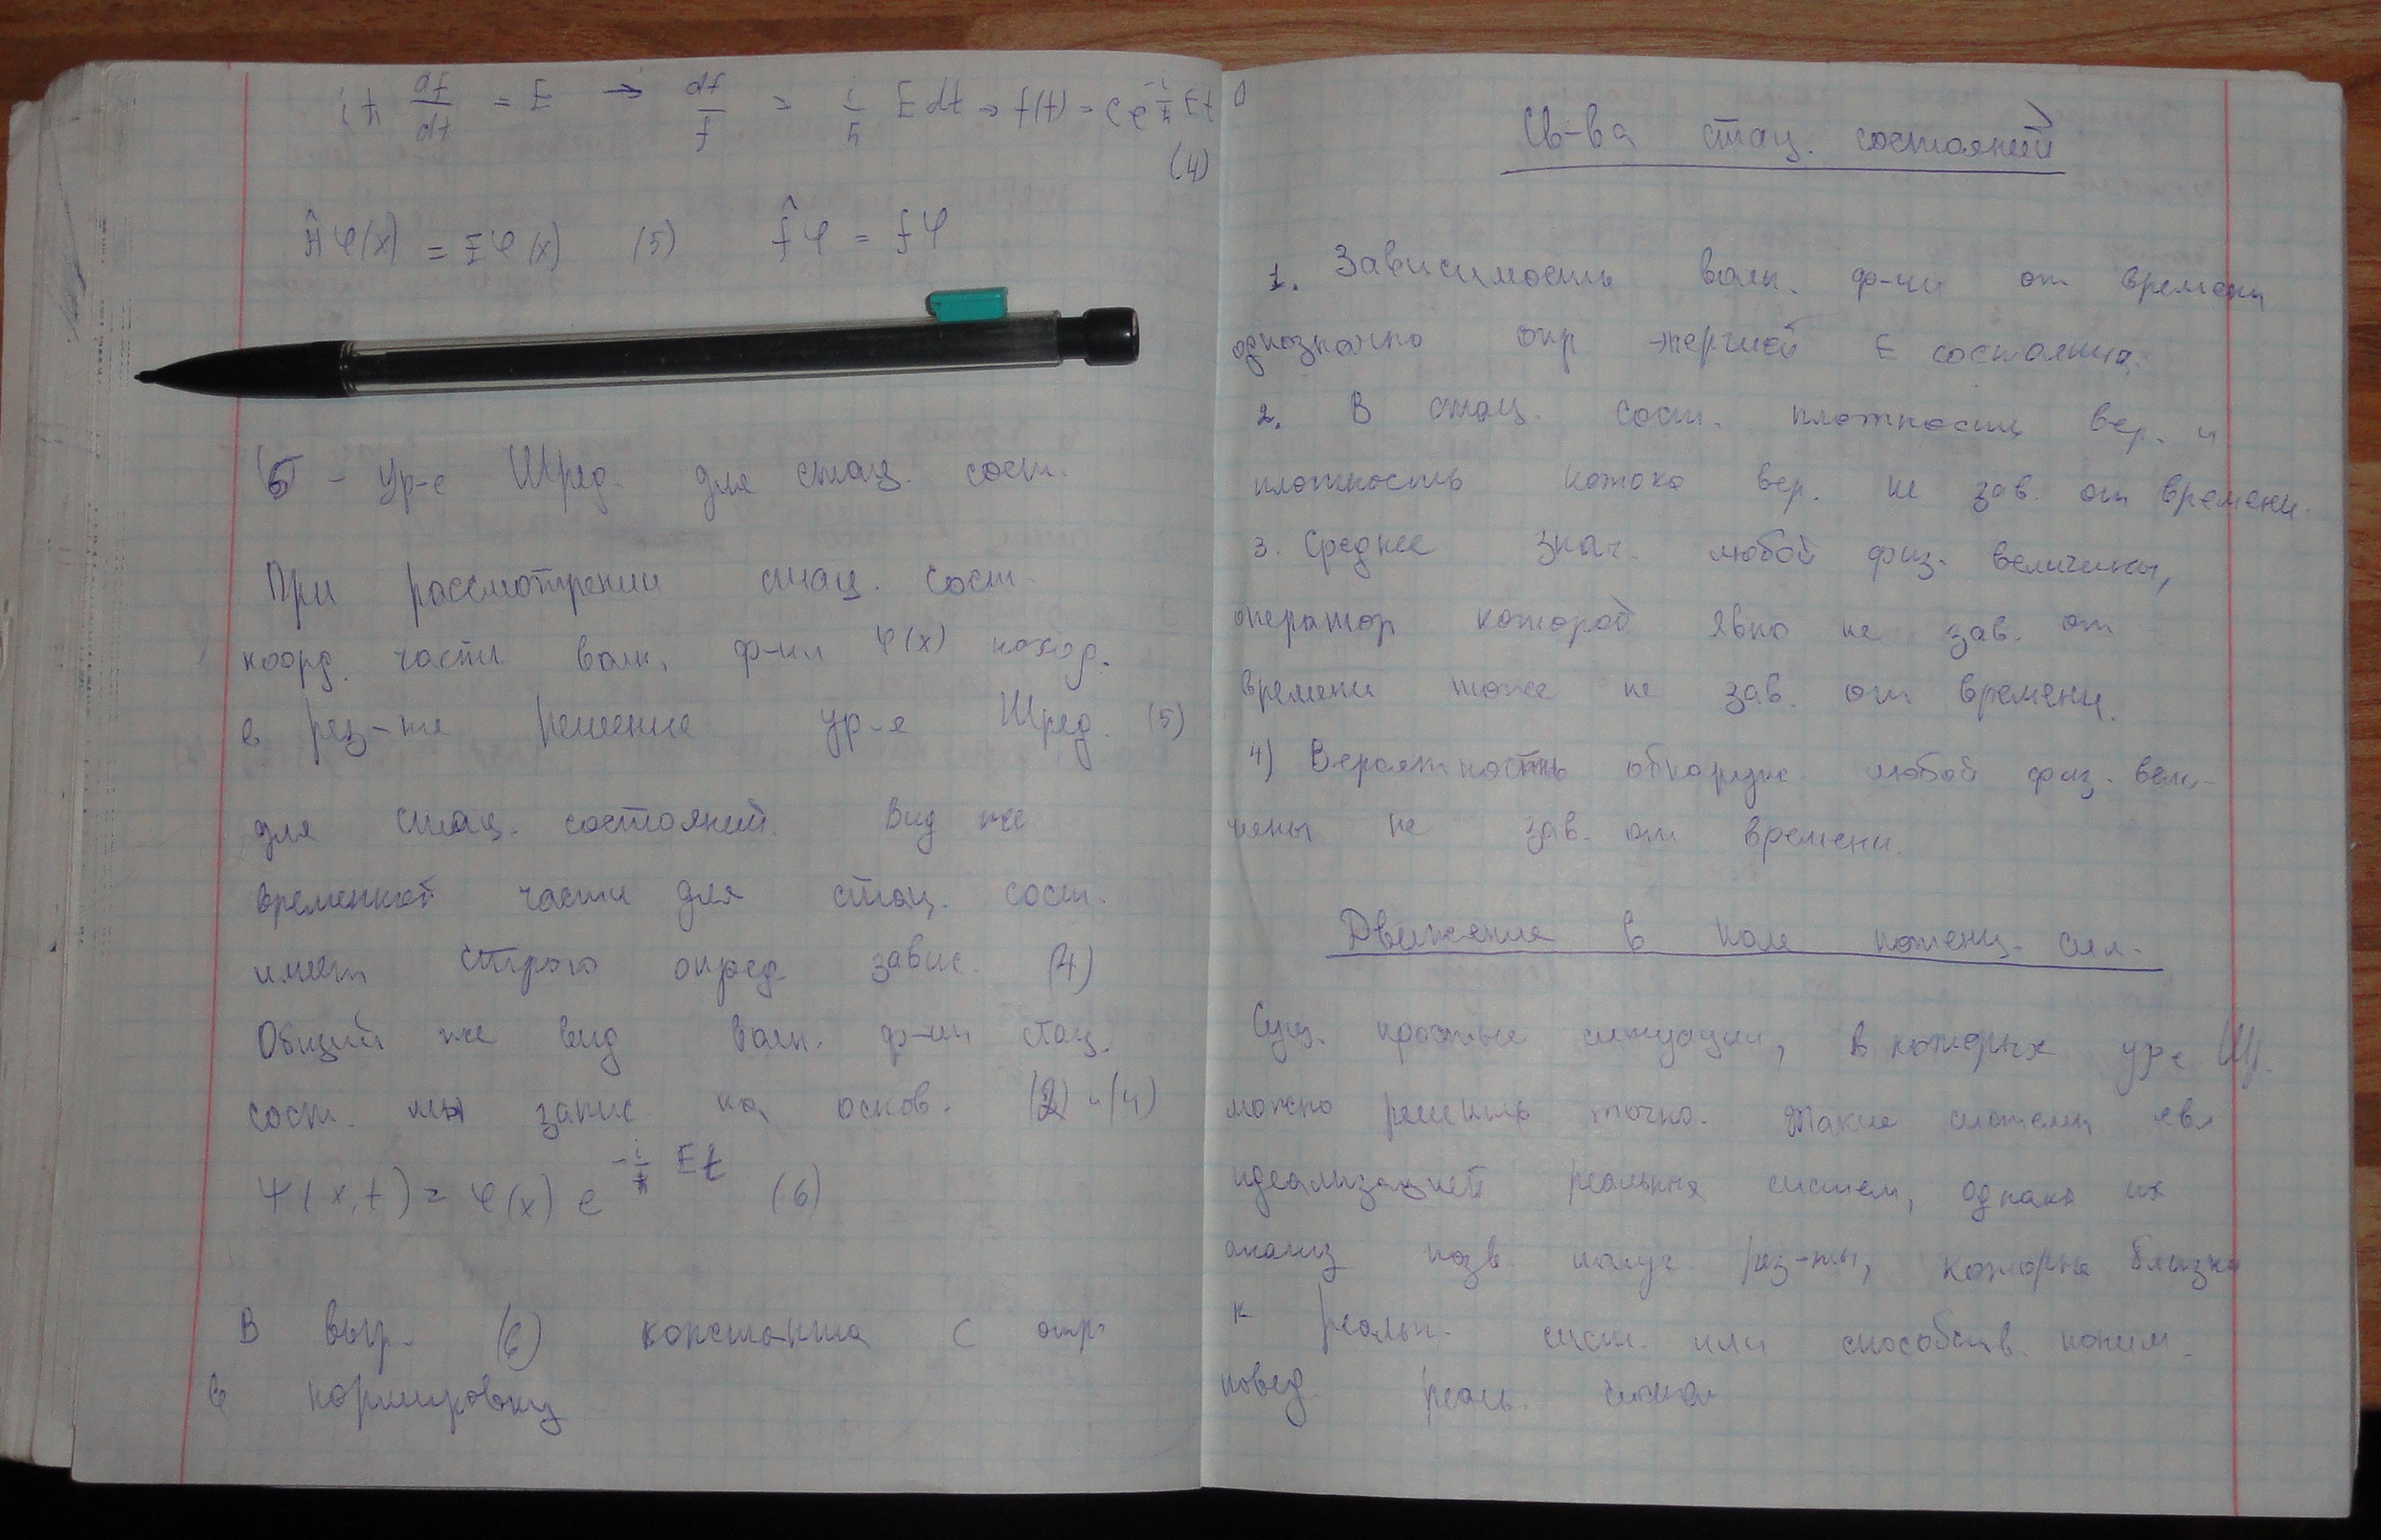 iħ df/dt = E → df/f = i/ħ E dt → f(t) = C e^{-i/ħ Et}
(4)
Ĥφ(x) = Eφ(x) (5) f̂φ = fφ
5 - ур-е Шред. для стац. сост.
При рассмотрении стац. сост.
коорд. части волн. ф-ии φ(x) наход.
в рез-те решение ур-я Шред. (5)
для стац. состояний. Вид же
временной части для стац. сост.
имеет строго опред. завис. (4)
Общий же вид волн. ф-ии стац.
сост. мы запис на основ. (2) и (4)
Ψ(x,t) = φ(x) e^{-i/ħ Et} (6)
В выр. (6) константа C отр
в нормировку
Св-ва стац. состояний
1. Зависимость волн. ф-ии от времени
однозначно опр энергией E состояния.
2. В стац. сост. плотность вер. и
плотность потока вер. не зав. от времени.
3. Среднее знач. любой физ. величины,
оператор которой явно не зав. от
времени тоже не зав. от времени.
4) Вероятность обнаруж. любой физ. вели-
чины не зав. от времени.
Движение в поле потенц. сил.
Сущ. простые ситуации, в которых ур-е Ш.
можно решить точно. Такие системы явл
идеализацией реальных систем, однако их
анализ позв. получ рез-ты, которые близки
к реальн. сист. или способств. поним.
повед. реальн.